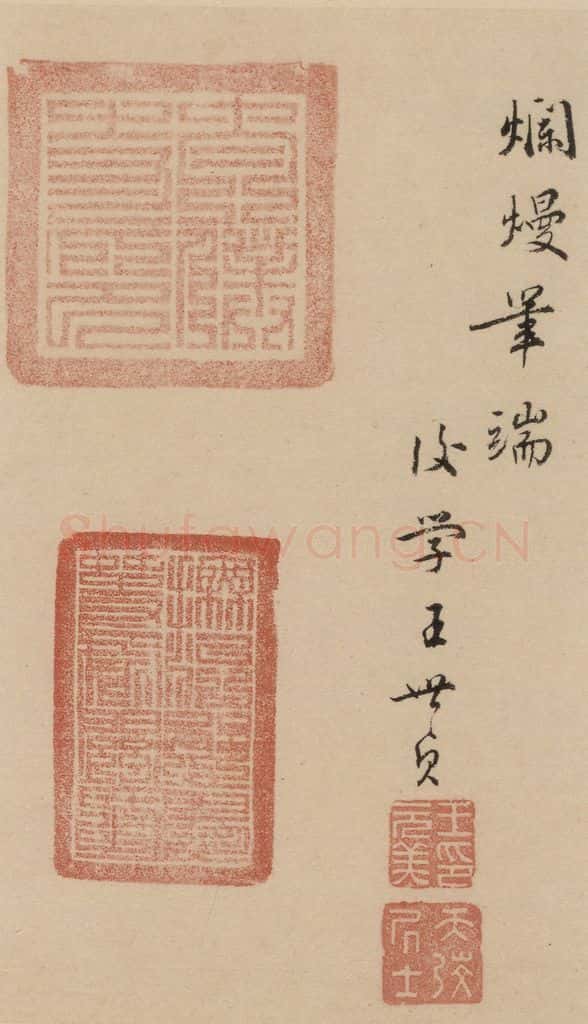 爛熳筆端
後学王世貞
王印元美
天弢居士
Shufawang.CN